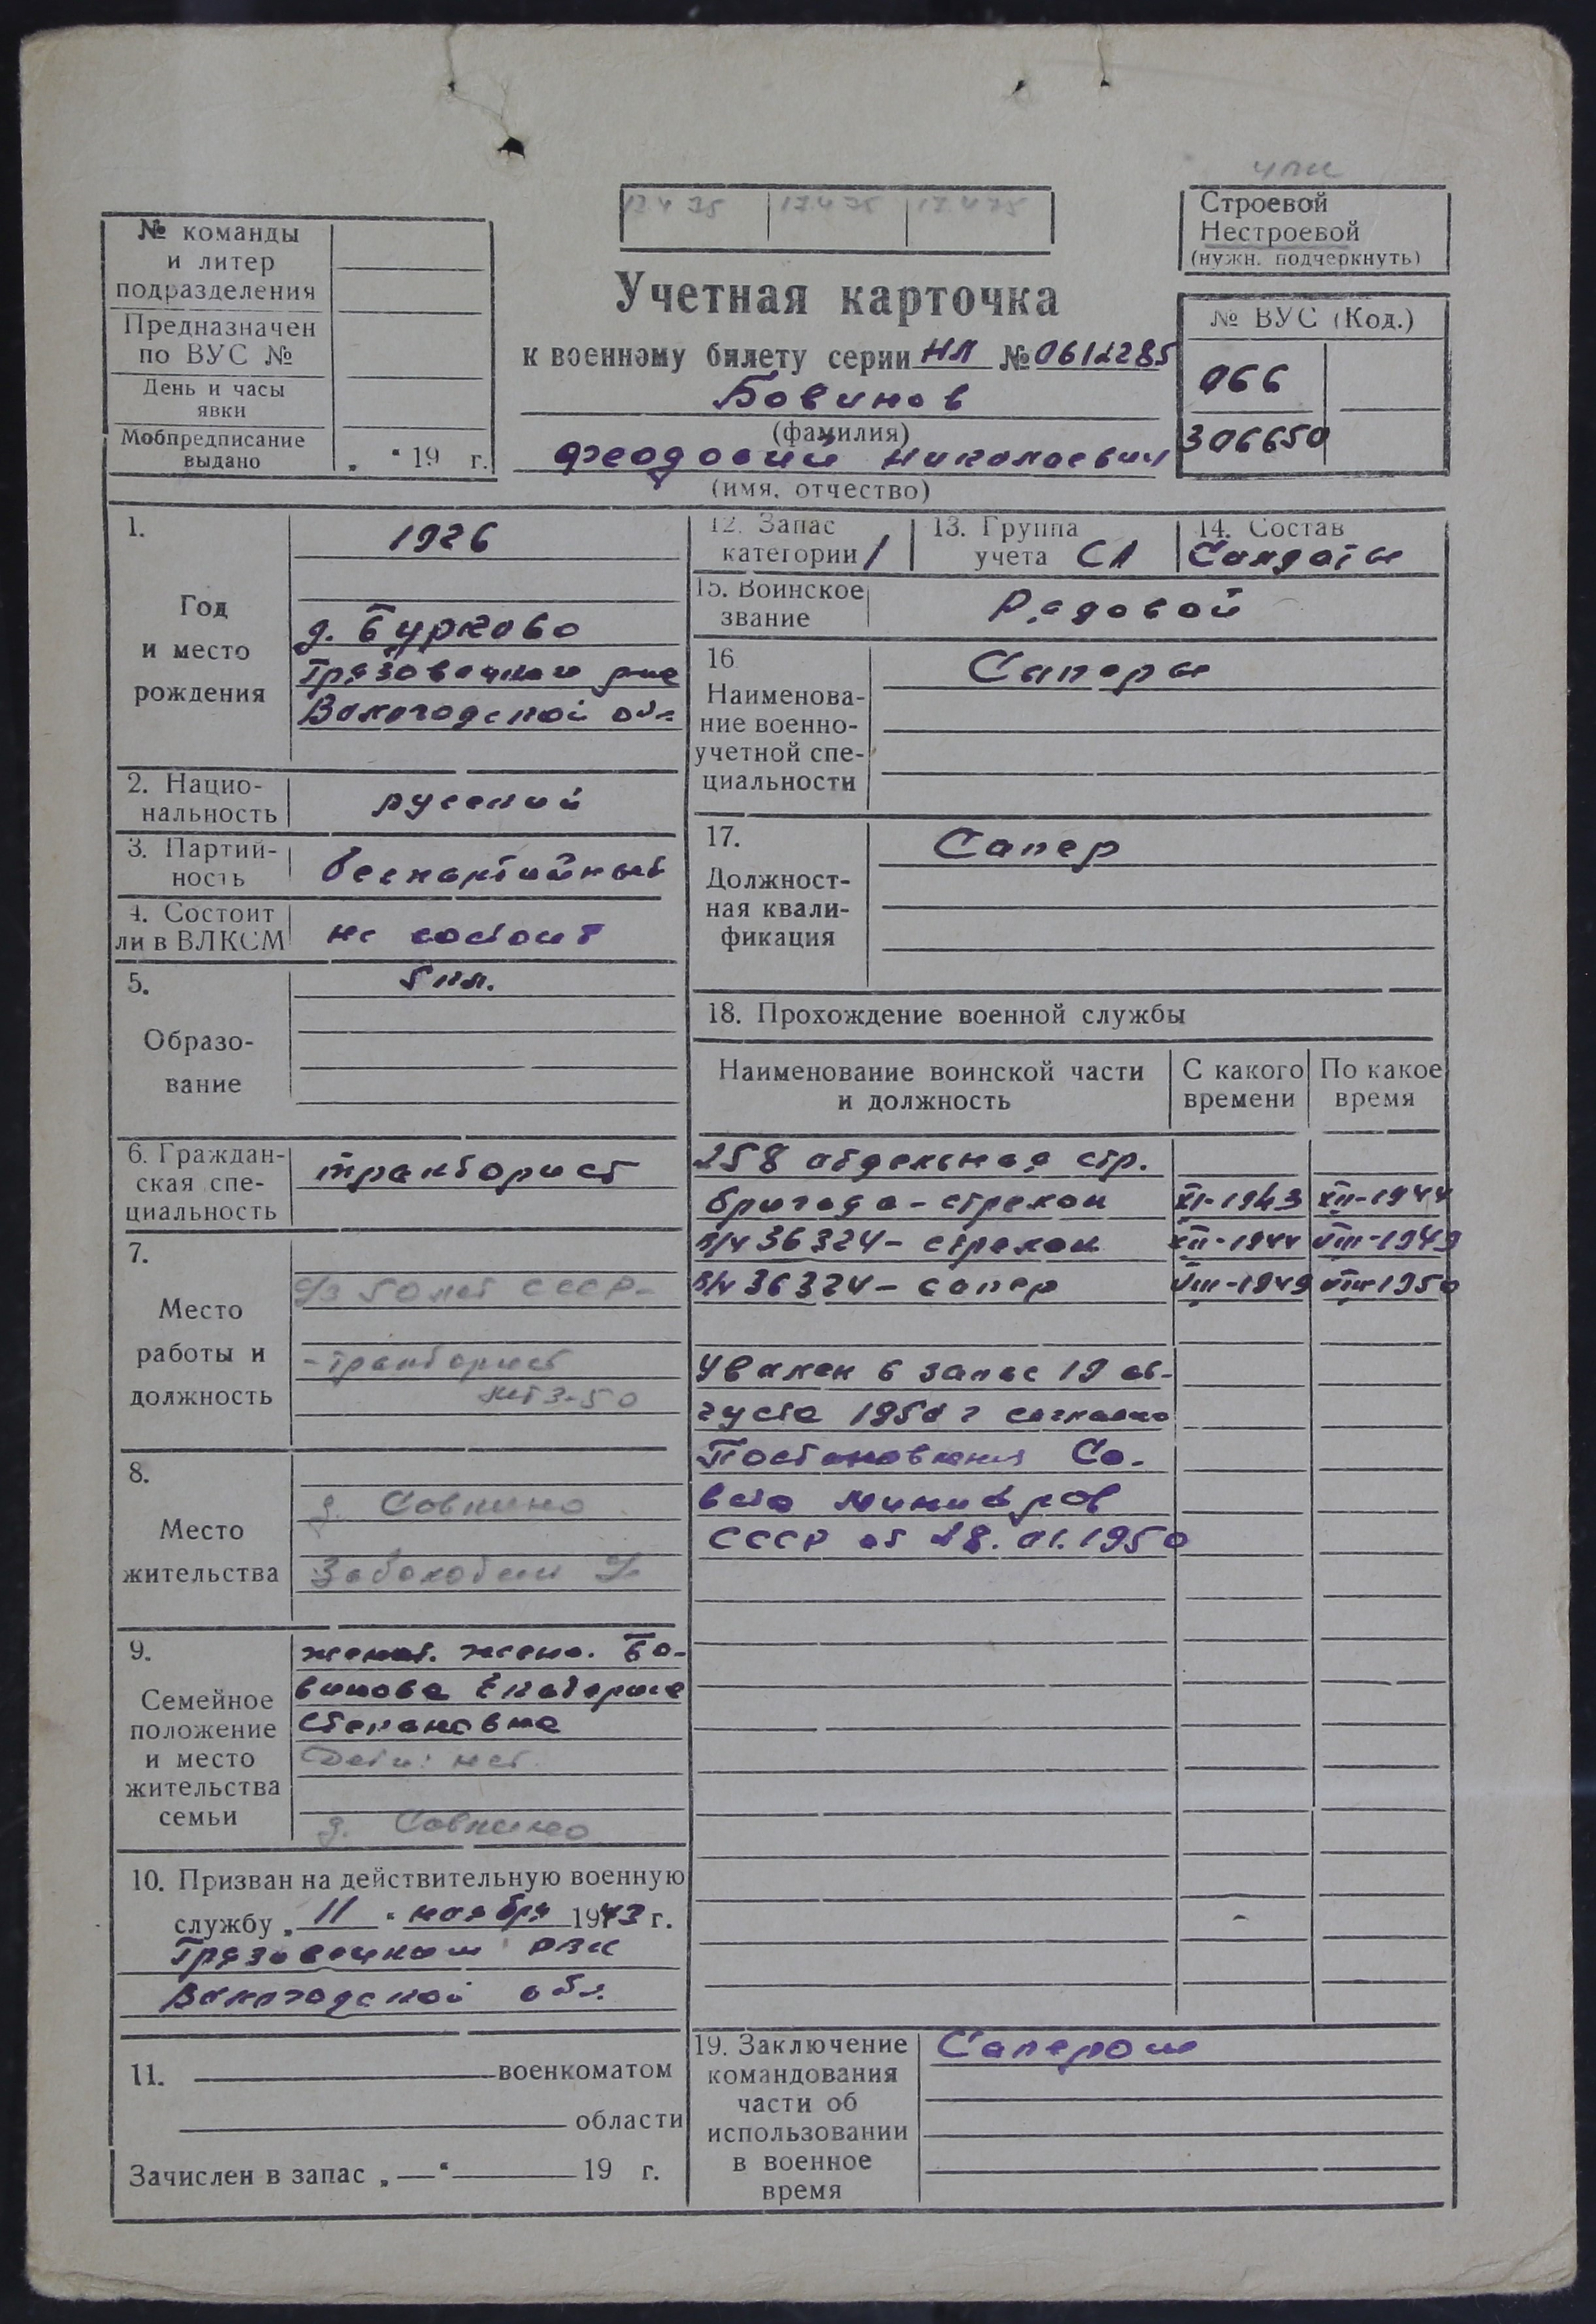 17.4.75 17.4.75 17.4.75
Строевой
Нестроевой
(нужн. подчеркнуть)
№ команды
и литер
подразделения
Предназначен
по ВУС №
День и часы
явки
Мобпредписание
выдано
„ “ 19 г.
Учетная карточка
к военному билету серии НЛ № 0612285
Бовинов
(фамилия)
Феодосий Николаевич
(имя, отчество)
№ ВУС (Код.)
066
306650
1.
Год
и место
рождения
1926
д. Бурково
Грязовецкого р-на
Вологодской обл.
2. Нацио-
нальность
русский
3. Партий-
ность
беспартийный
4. Состоит
ли в ВЛКСМ
не состоит
5.
Образо-
вание
5 кл.
6. Граждан-
ская спе-
циальность
тракторист
7.
Место
работы и
должность
с/з 50 лет СССР-
-тракторист
8.
Место
жительства
д. Совкино
9.
Семейное
положение
и место
жительства
семьи
женат. жена. Бо-
винова Екатерина
Степановна
Дети: нет.
д. Совкино
10. Призван на действительную военную
службу „ 11 “ ноября 1943 г.
Грязовецким РВК
Вологодской обл.
11. военкоматом
области
Зачислен в запас „—“ 19 г.
12. Запас
категории 1
13. Группа
учета СА
14. Состав
Солдаты
15. Воинское
звание
Рядовой
16
Наименова-
ние военно-
учетной спе-
циальности
Саперы
17.
Должност-
ная квали-
фикация
Сапер
18. Прохождение военной службы
Наименование воинской части
и должность
С какого
времени
По какое
время
258 отдельная стр.
бригада - стрелок XI-1943 XII-1944
в/ч 36324 - стрелок XII-1944 VIII-1949
в/ч 36324 - сапер VIII-1949 VIII-1950
Уволен в запас 19 ав-
густа 1950 г согласно
Постановления Со-
вета Министров
СССР от 28.01.1950
19. Заключение
командования
части об
использовании
в военное
время
Сапером